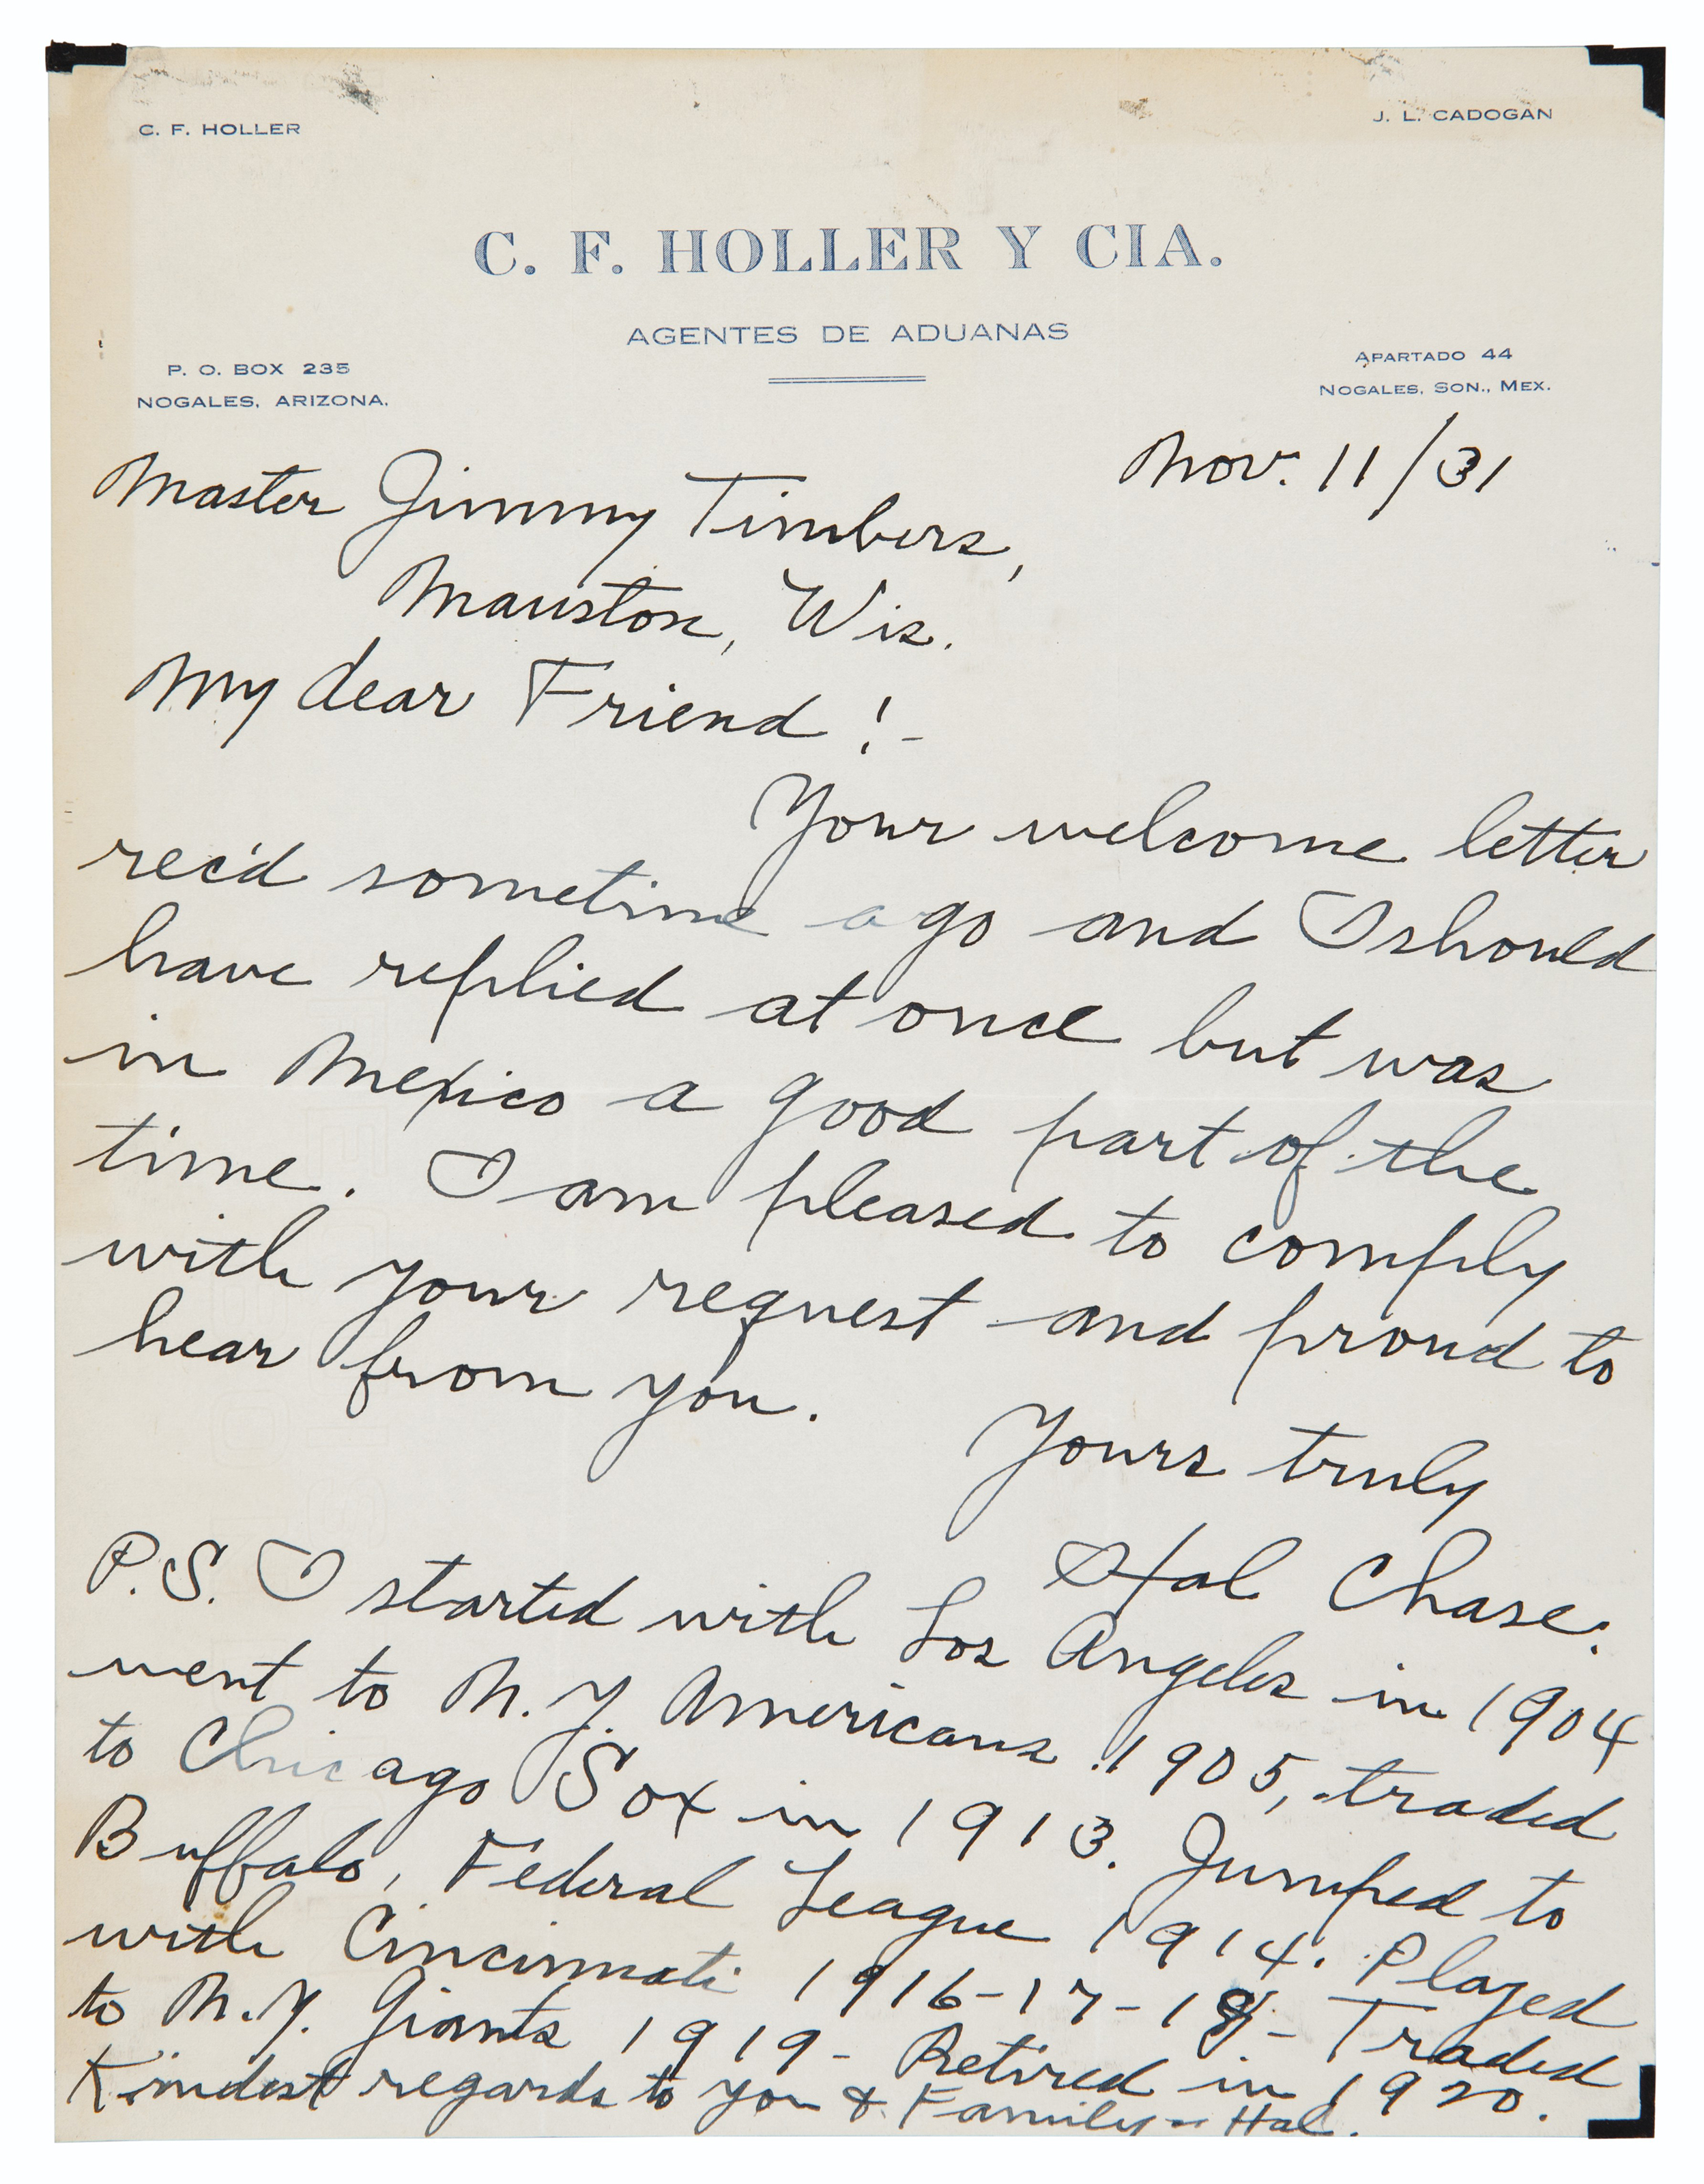 C. F. HOLLER
J. L. CADOGAN
C. F. HOLLER Y CIA.
AGENTES DE ADUANAS
P. O. BOX 235
NOGALES, ARIZONA.
APARTADO 44
NOGALES, SON., MEX.
Nov. 11/31
Master Jimmy Timbers,
Mauston, Wis.
My dear Friend!-
Your welcome letter
rec'd sometime ago and I should
have replied at once but was
in Mexico a good part of the
time. I am pleased to comply
with your request and proud to
hear from you.
Yours truly
Hal Chase.
P.S. I started with Los Angeles in 1904
went to N.Y. Americans 1905, traded
to Chicago Sox in 1913. Jumped to
Buffalo, Federal League 1914. Played
with Cincinnati 1916-17-18- Traded
to N.Y. Giants 1919- Retired in 1920.
Kindest regards to you & Family - Hal.